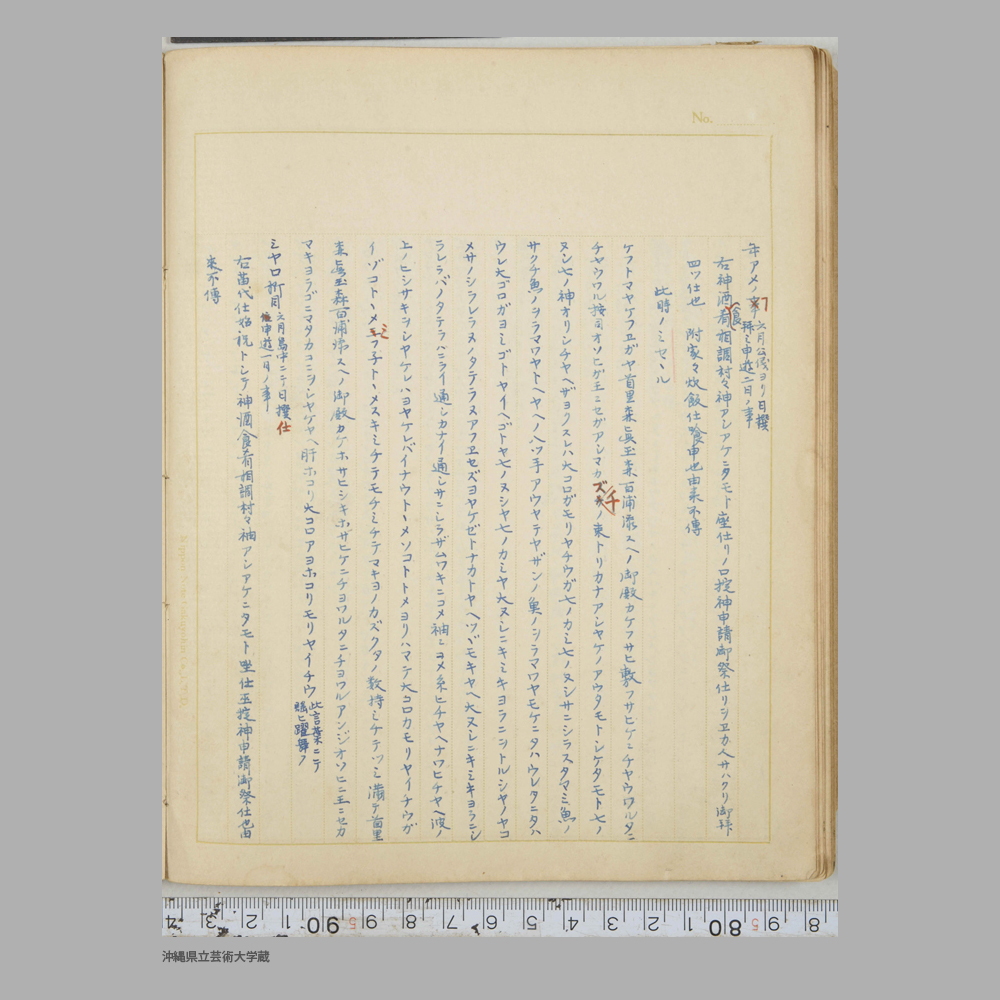 No.
年アメノ事 六月公儀ヨリ日撰
拝ミ申遊二日ノ事
右神酒肴相調村々神アシアケニタモト座仕リノロ掟神申請御祭仕リヲヱカ人サハクリ御拝
四ツ仕也 附家々炊飯仕喰申也由来不傳
此時ノミセヽル
ケフトマヤケフヱガヤ首里森真玉森百浦添スヘノ御殿カケフサヒ敷フサヒケニチヤウワルタニ
チヤウワル按司オソヒガ王ニセガアシマカズチノ東トリカナアシヤケノアウタモトシケタモトセノ
ヌシセノ神オリシチヤヘザヨクスレハ大コロガモリヤチウガセノカミセノヌシサニシラスタマミ魚ノ
サクチ魚ノシラマワヤトヘヤヘノハツ手アウヤテヤザンノ魚ノシラマワヤモケニタハウレタニタハ
ウレ大ゴロガヨミゴトヤイヘゴトヤセノヌシヤセノカミヤ大ヌシニキミキヨラニシトルシヤノヤコ
メサノシラレラヌノタテラヌアフヱセズヨヤケゼトナカトヤヘツヾモキヤヘ大ヌシニキミキヨラニシ
ラレラバノタテラハニライ通シカナイ通シサニシラザムワキニコメ袖ニヨメ糸ヒチヤヘナワヒチヤヘ波ノ
上ノヒシサキヲシヤケレハヨヤケレバイナウトヽメソコトトメヨリハマテ大コロカモリヤイチウガ
イゾコトヽメミフ子トヽメスキミチテモチミチテマキヨノカズクタノ数持ミチテツミ満テ首里
森真玉森百浦添スヘノ御殿カケホサヒシキホサヒケニチヨワルタニチヨワルアンジオソヒニ王ニセカ
マキヨラゴニマタカコニヲシヤケヤヘ肝ホコリ大コロアヨホコリモリヤイチウ 此言葉ニテ
謡ヒ躍舞フ
ミヤロ折目 六月島中ニテ日撰仕
申遊一日ノ事
右苗代仕始祝トシテ神酒食肴相調村々袖アシアケニタモト坐仕巫掟神申請御祭仕也由
来不傳
沖縄県立芸術大学蔵